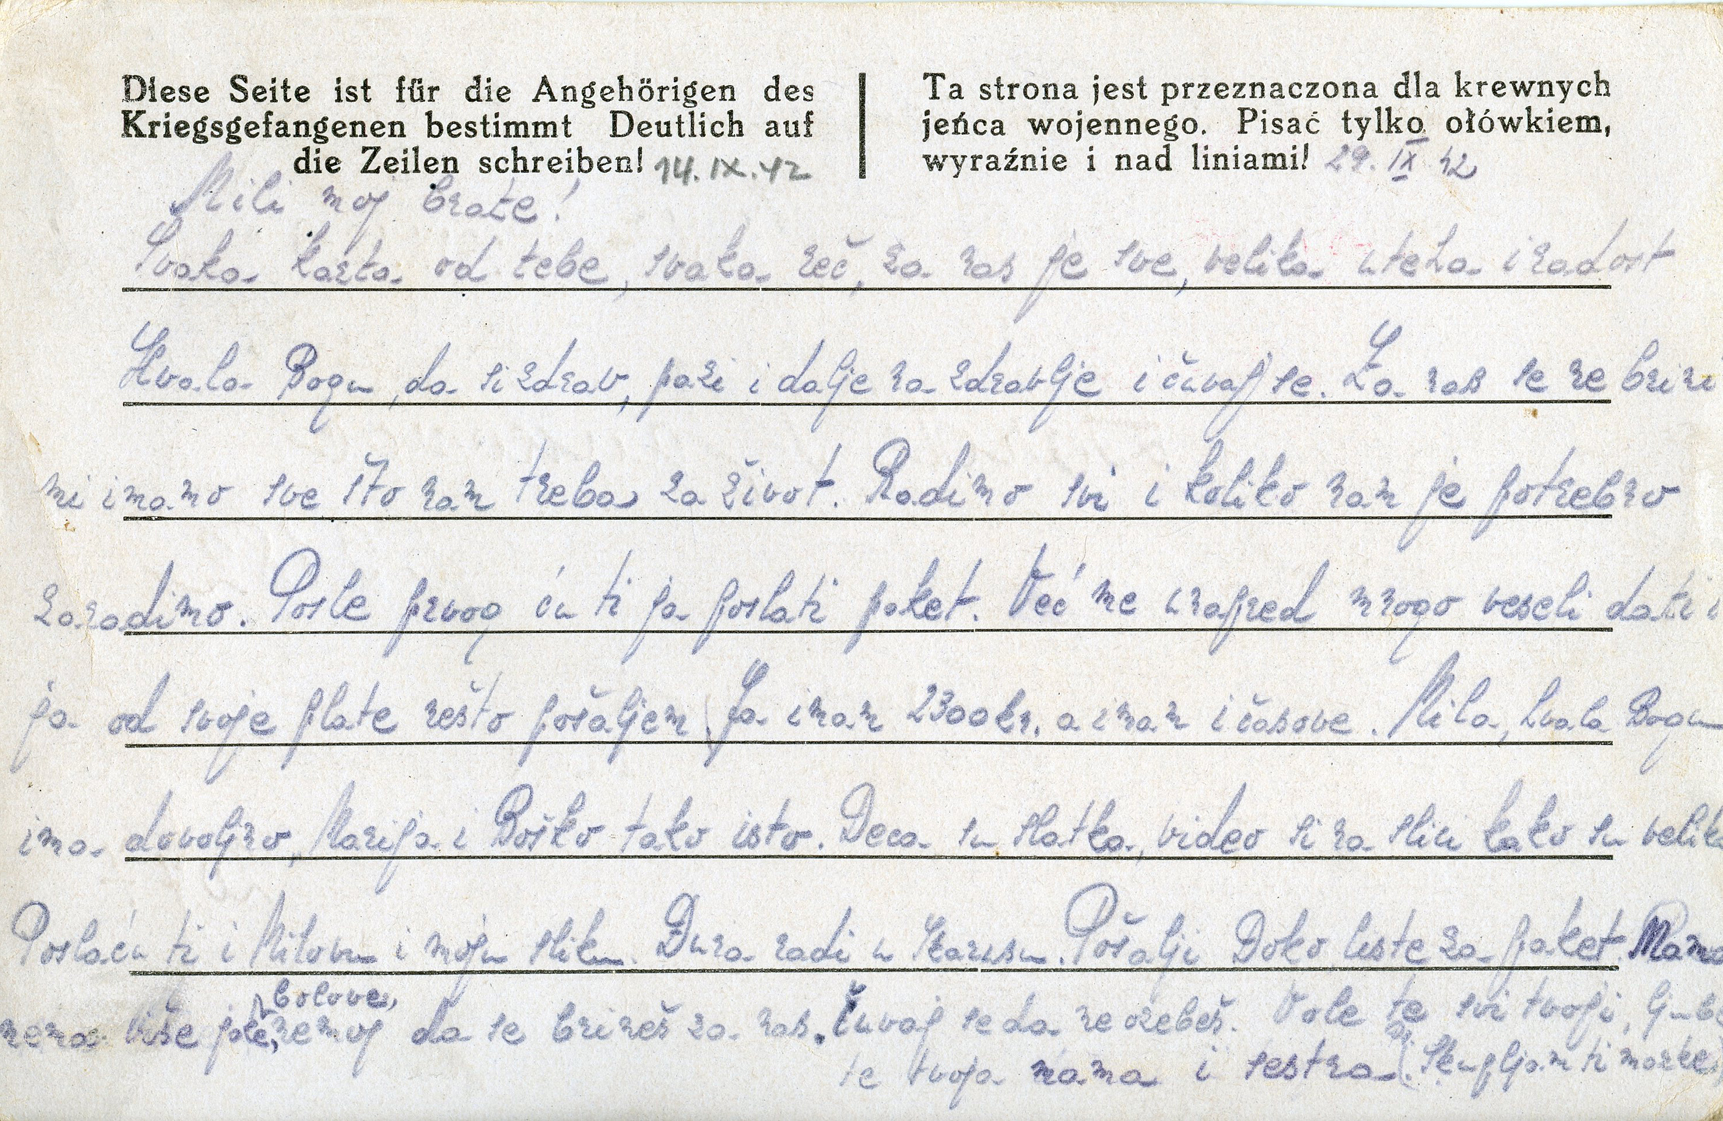 Diese Seite ist für die Angehörigen des
Kriegsgefangenen bestimmt Deutlich auf
die Zeilen schreiben! 14.IX.42
Ta strona jest przeznaczona dla krewnych
jeńca wojennego. Pisać tylko ołówkiem,
wyraźnie i nad liniami! 29. IX 42
Mili moj brate!
Svaka karta od tebe, svaka reč, za nas je sve, velika uteha i radost
Hvala Bogu, da si zdrav, pazi i dalje na zdravlje i čuvaj se. Za nas se ne brini
mi imamo sve što nam treba za život. Radimo svi i koliko nam je potrebno
zaradimo. Posle prvog ću ti ja poslati paket. Već me unapred mnogo veseli da ti i
ja od svoje plate nešto pošaljem. Ja imam 2300 kn. a imam i časove. Mila, hvala Bogu
ima dovoljno, Marija i Boško tako isto. Deca su slatka, video si na slici kako su velika
Poslaću ti i Milovu i moju sliku. Đura radi u Karlsu. Pošalji Doko liste za paket. Mama
nema više bolove, nemoj da se brineš za nas. Čuvaj se da ne ozebeš. Vole te svi tvoji, ljube
te tvoja mama i sestra (Skupljam ti marke)